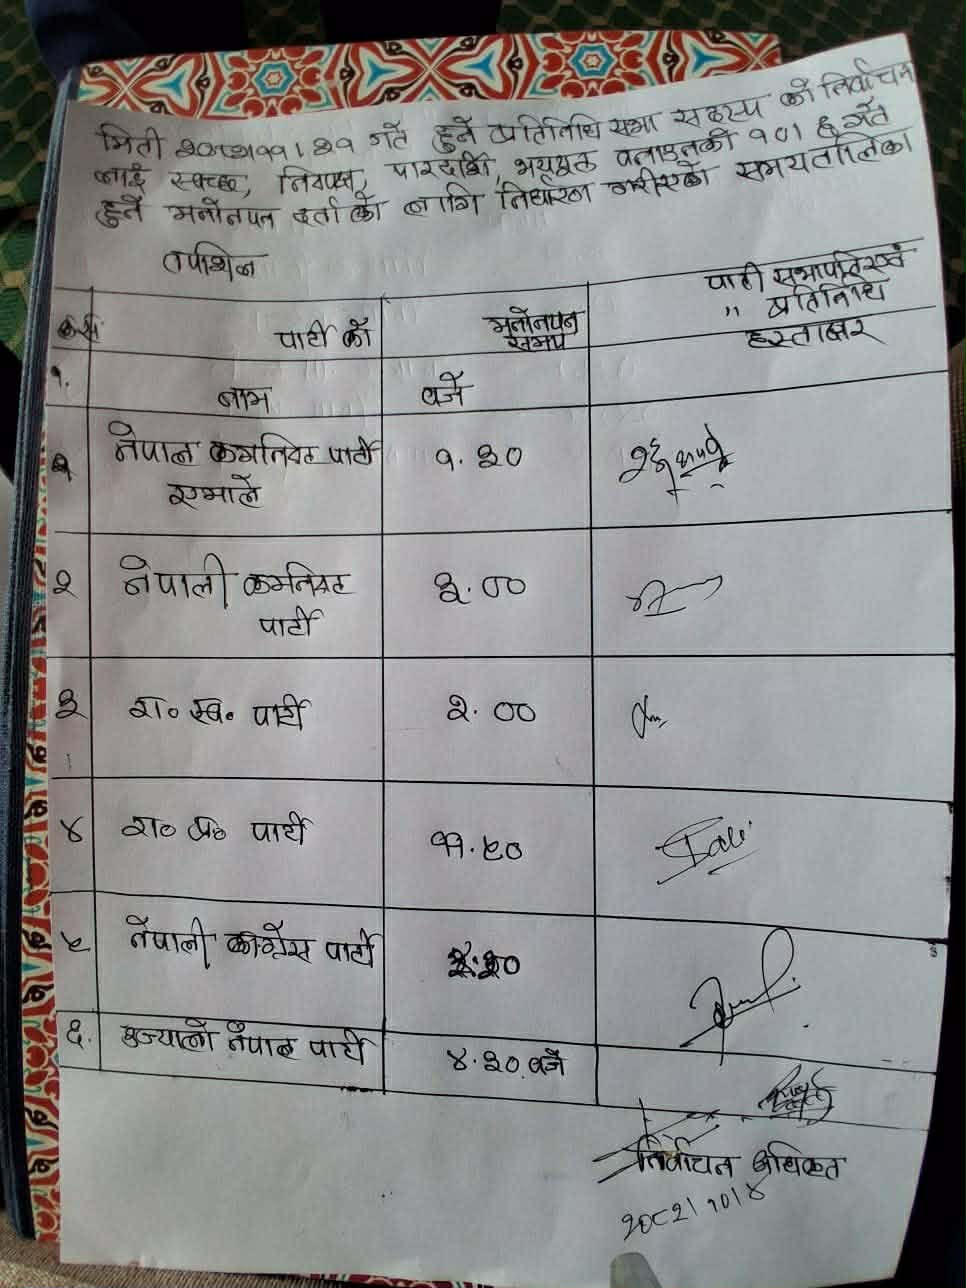 मिती २०८२।११।२१ गते हुने प्रतिनिधि सभा सदस्य को निर्वाचन
लाई स्वच्छ, निष्पक्ष, पारदर्शी, १०।६ गते
हुने मनोनयन दर्ता को लागि निर्धारण गरीएको समयतालिका
तपशिल
क्र.सं पार्टी को मनोनयन समय पार्टी सभापति एवं
" प्रतिनिधि
हस्ताक्षर
१. नाम वजे
नेपाल कम्निस्ट पार्टी एमाले १.३०
२ नेपाली कम्निस्ट पार्टी ३.००
३ रा० स्व० पार्टी २.००
४ रा० प्र० पार्टी ११.४०
५ नेपाली काग्रेस पार्टी
६. उज्यालो नेपाल पार्टी ४.३० वजे
निर्वाचन अधिकृत
२०८२।१०।४